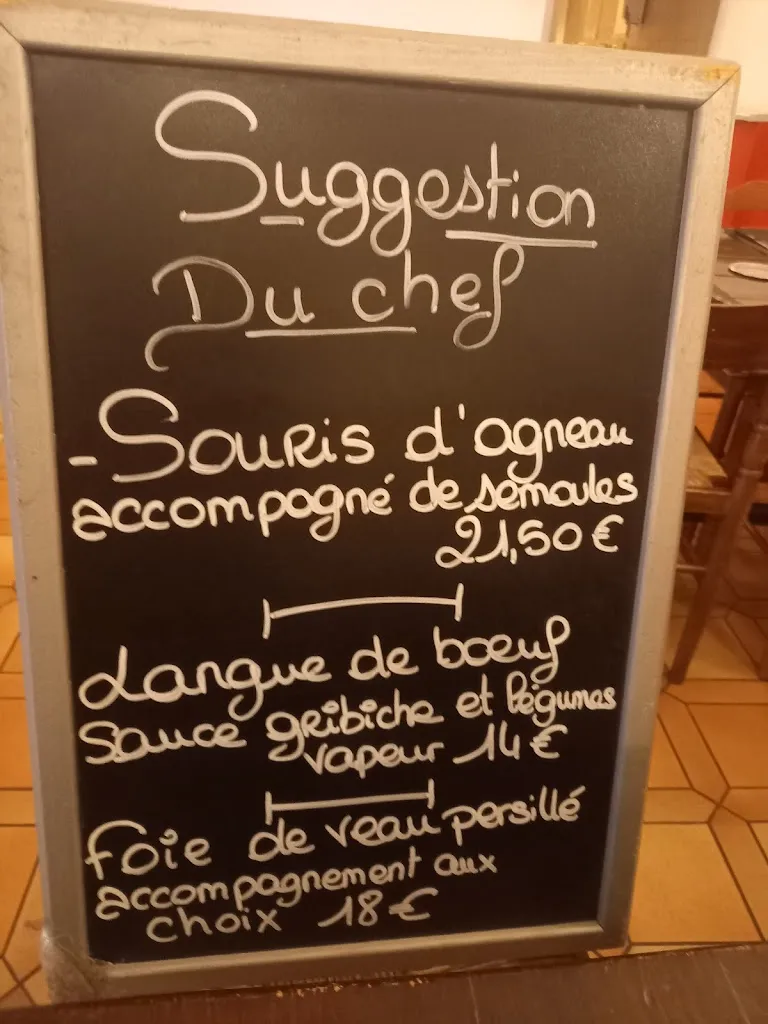 Suggestion
Du chef
- Souris d'agneau
accompagné de semoules
21,50 €
Langue de boeuf
sauce gribiche et légumes
vapeur 14 €
foie de veau persillé
accompagnement aux
choix 18 €